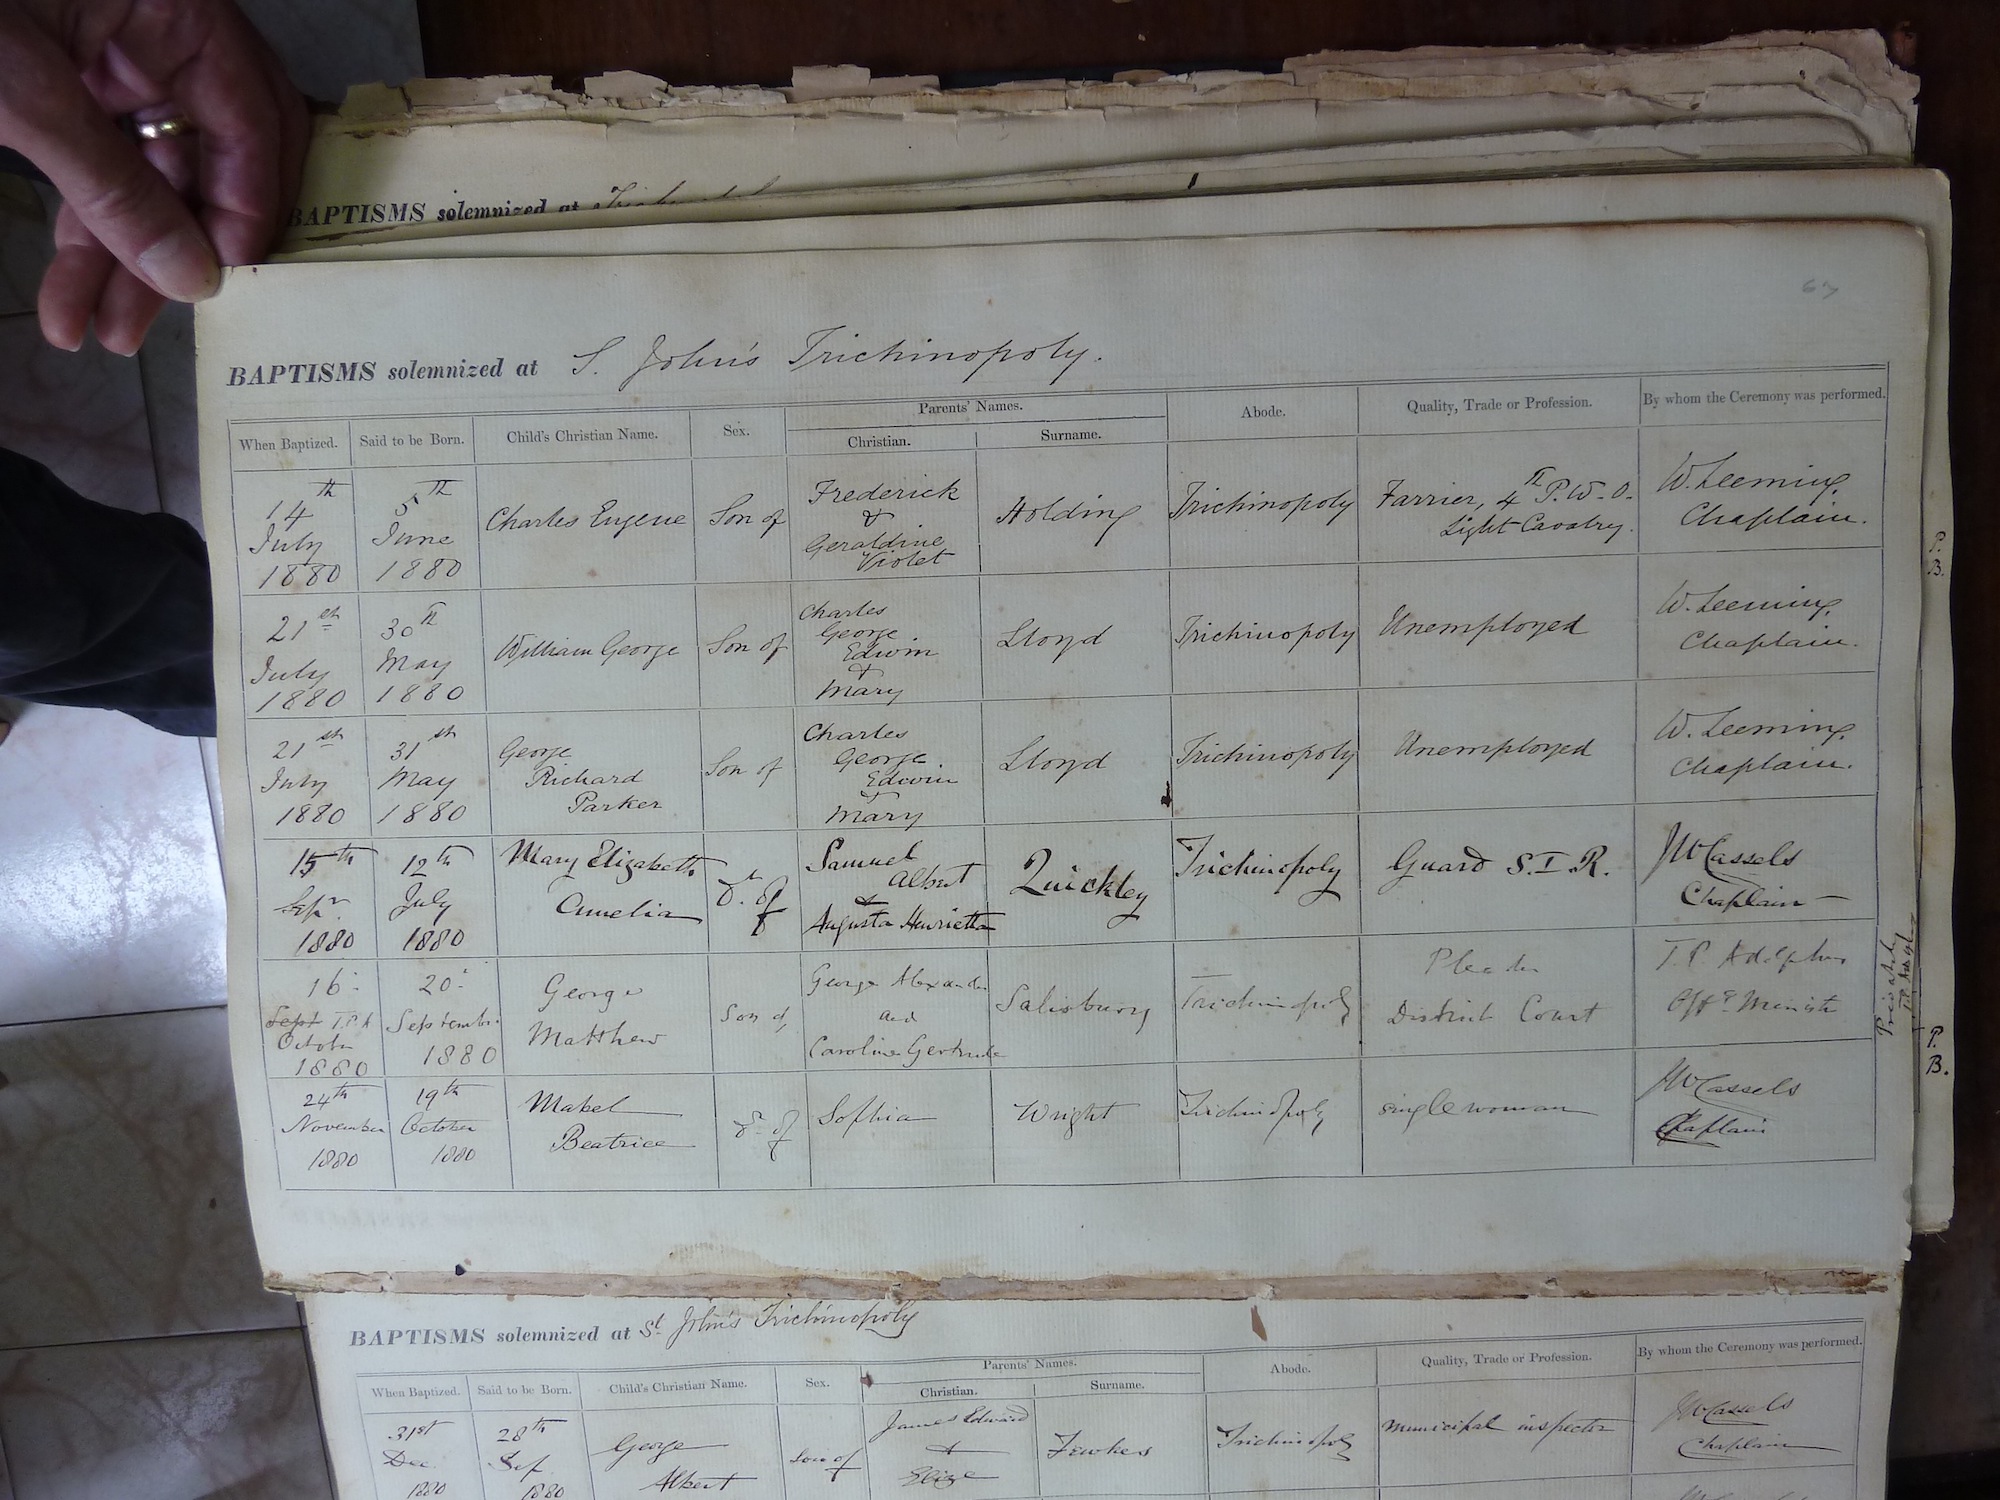 BAPTISMS solemnized at
67
BAPTISMS solemnized at S. John's Trichinopoly.
When Baptized. Said to be Born. Child's Christian Name. Sex. Parents' Names. Christian. Surname. Abode. Quality, Trade or Profession. By whom the Ceremony was performed.
14th July 1880
5th June 1880
Charles Eugene
Son of
Frederick
&
Geraldine
Violet
Holding
Trichinopoly
Farrier, 4th P.W.O.
Light Cavalry.
W. Leeming
Chaplain.
P.
B.
21st July 1880
30th May 1880
William George
Son of
Charles
George
Edwin
&
Mary
Lloyd
Trichinopoly
Unemployed
W. Leeming
Chaplain.
21st July 1880
31st May 1880
George
Richard
Parker
Son of
Charles
George
Edwin
&
Mary
Lloyd
Trichinopoly
Unemployed
W. Leeming
Chaplain.
15th Sepr. 1880
12th July 1880
Mary Elizabeth
Amelia
Dt. of
Samuel
Albert
&
Augusta Henrietta
Quickley
Trichinopoly
Guard S.I.R.
JW Cassels
Chaplain
16 Sept T.P.A October 1880
20 September 1880
George
Matthew
Son of
George Alexander
and
Caroline Gertrude
Salisbury
Trichinopoly
Pleader
District Court
T. P. Adolphus
Offg Minister
Privately
P.
B.
24th November 1880
19th October 1880
Mabel
Beatrice
D. of
Sophia
Wright
Trichinopoly
single woman
JW Cassels
Chaplain
BAPTISMS solemnized at St. John's Trichinopoly
When Baptized. Said to be Born. Child's Christian Name. Sex. Parents' Names. Christian. Surname. Abode. Quality, Trade or Profession. By whom the Ceremony was performed.
31st Dec 1880
28th Sep 1880
George
Albert
Son of
James Edward
&
Eliza
Fewkes
Trichinopoly
Municipal inspector
JW Cassels
Chaplain